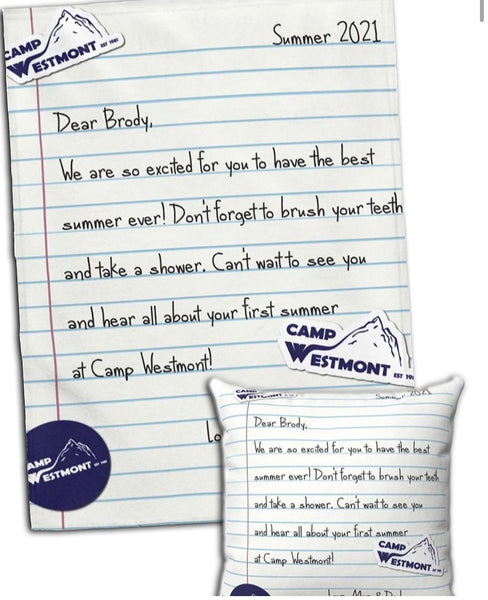 CAMP
WESTMONT EST 1981
Summer 2021
Dear Brody,
We are so excited for you to have the best
summer ever! Don't forget to brush your teeth
and take a shower. Can't wait to see you
and hear all about your first summer
at Camp Westmont!
CAMP
WESTMONT
EST
Lo
AMP
WESTMONT
WESTMONT
Summer 2021
Dear Brody,
We are so excited for you to have the best
summer ever! Don't forget to brush your teeth
and take a shower. Can't wait to see you
and hear all about your first summer
at Camp Westmont!
CAMP
WESTMONT
Love, Mom & Dad